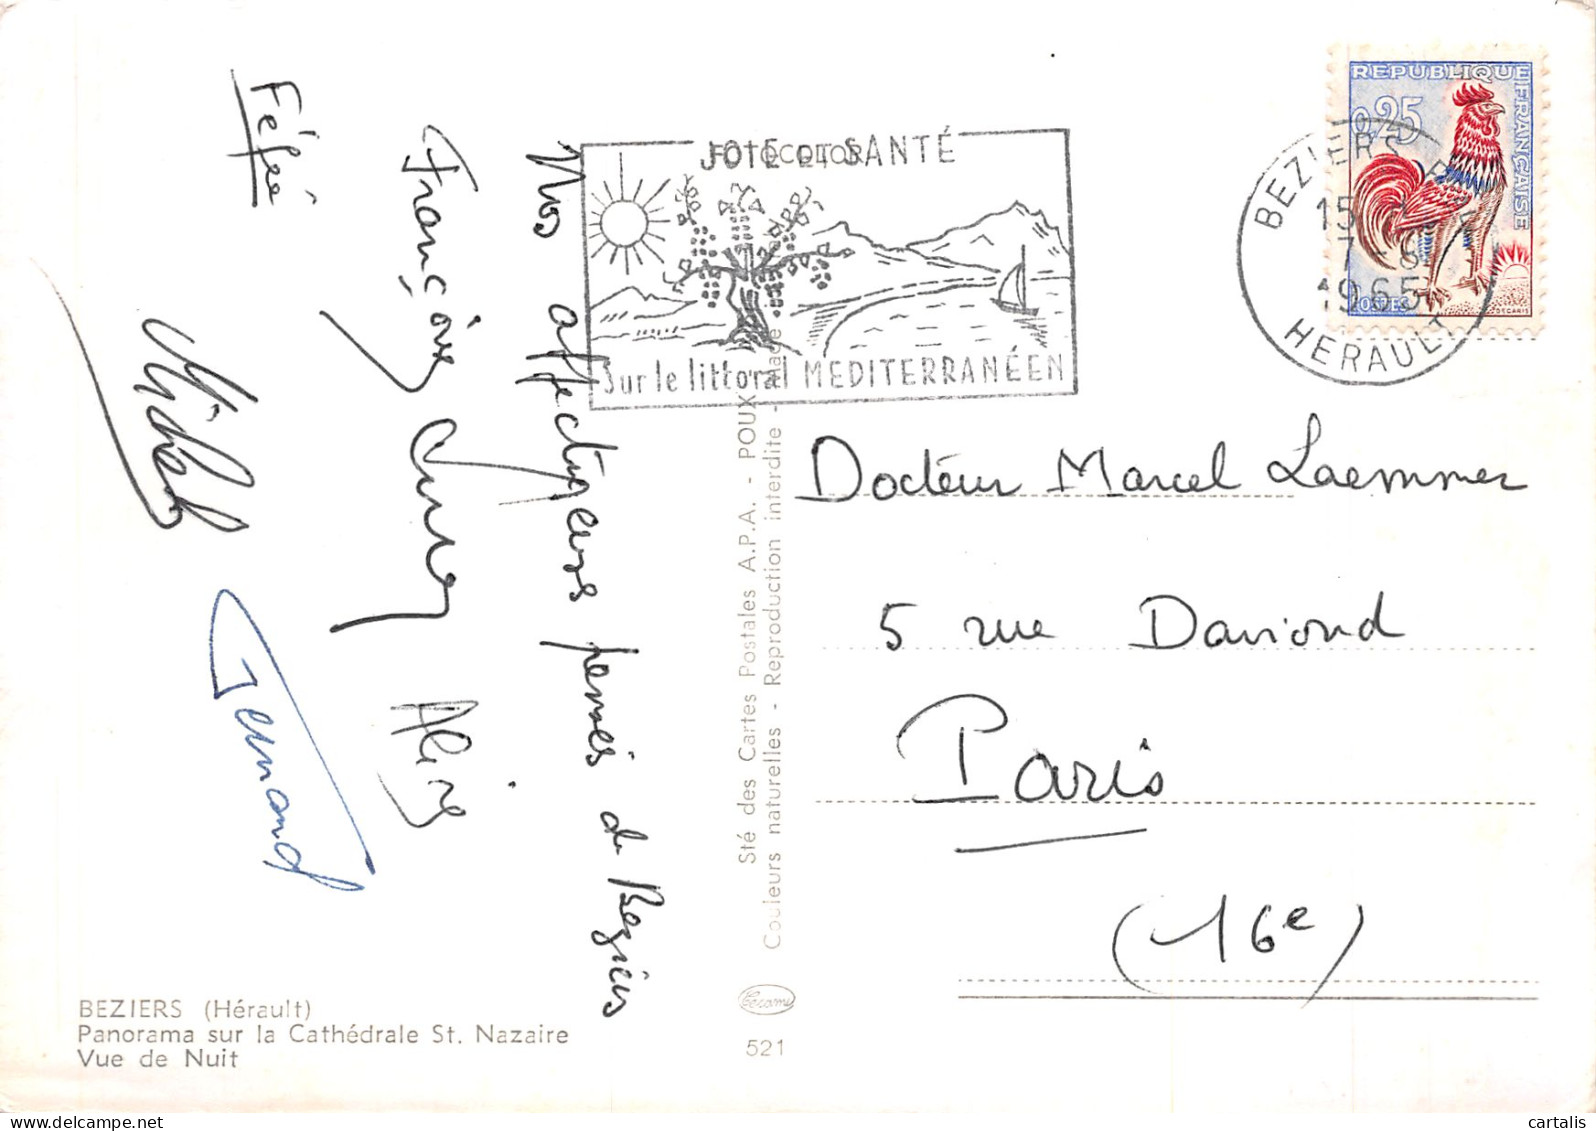 Nos affectueuses pensées de Beziers
Françoise
Alise
Féfée
Michel
Fernand
JOIE et SANTÉ
Sur le littoral MEDITERRANÉEN
REPUBLIQUE FRANÇAISE
0,25
POSTES
DECARIS
BEZIERS
15
7-8
1965
HERAULT
Docteur Marcel Laemmer
5 rue Daviond
Paris
(16e)
Sté des Cartes Postales A.P.A. - POUX
Couleurs naturelles - Reproduction interdite - Made
521
BEZIERS (Hérault)
Panorama sur la Cathédrale St. Nazaire
Vue de Nuit
cartalis
www.delcampe.net